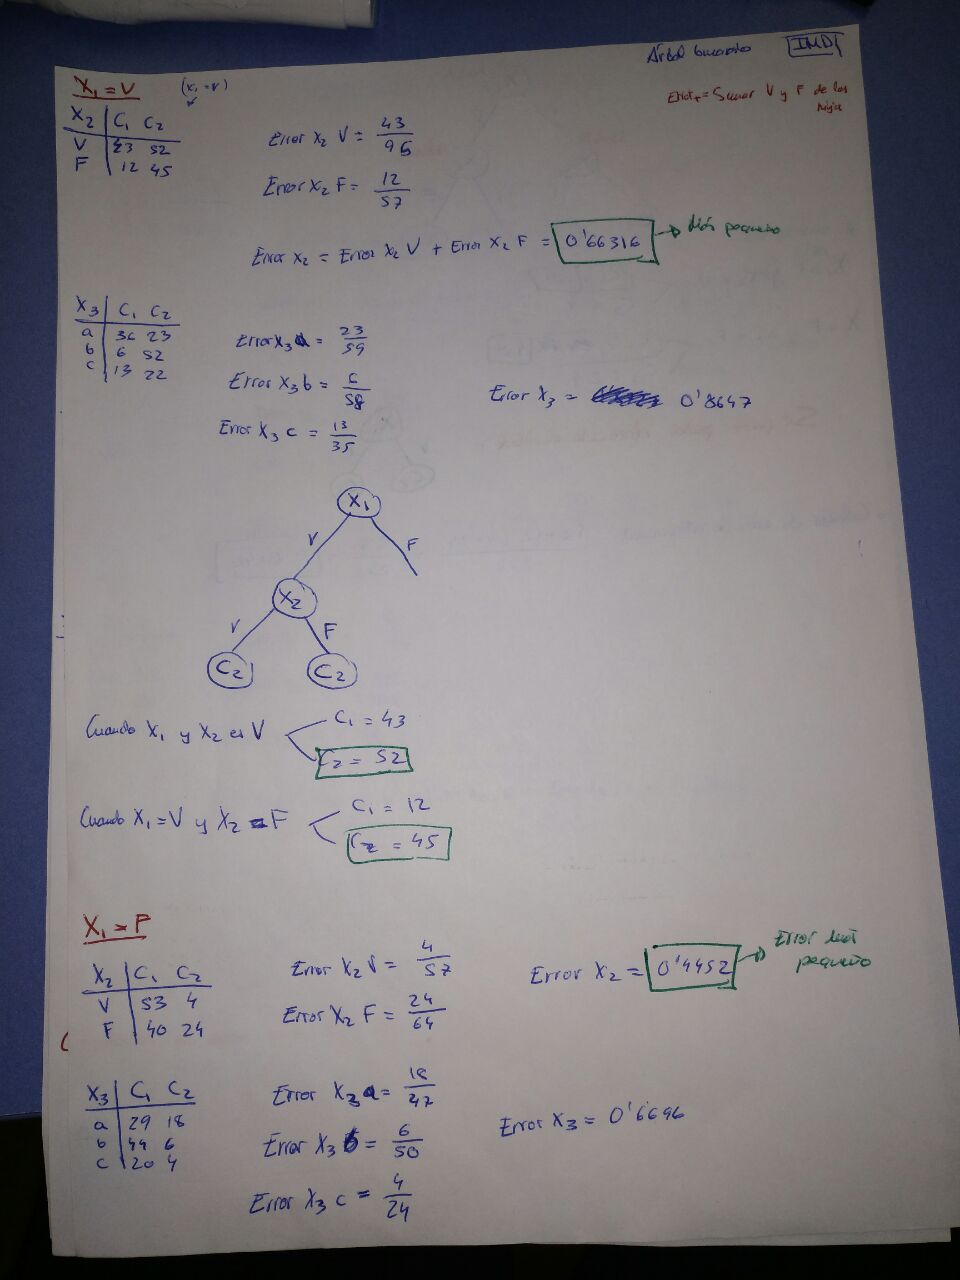 Árbol buscado IMD
Error = Sumar V y F de los hijos
X₁ = V (X₁ = V)
X₂ C₁ C₂
V 43 52
F 12 45
Error X₂ V = 43/95
Error X₂ F = 12/57
Error X₂ = Error X₂ V + Error X₂ F = 0'66316 → Más pequeño
X₃ C₁ C₂
a 36 23
b 6 52
c 13 22
Error X₃ a = 23/59
Error X₃ b = 6/58
Error X₃ c = 13/35
Error X₃ = 0'8647
X₁
V F
X₂
V F
C₂ C₂
Cuando X₁ y X₂ es V
C₁ = 43
C₂ = 52
Cuando X₁ = V y X₂ = F
C₁ = 12
C₂ = 45
X₁ = F
X₂ C₁ C₂
V 53 4
F 40 24
Error X₂ V = 4/57
Error X₂ F = 24/64
Error X₂ = 0'4452 → Error más pequeño
X₃ C₁ C₂
a 29 18
b 44 6
c 20 4
Error X₃ a = 18/47
Error X₃ b = 6/50
Error X₃ c = 4/24
Error X₃ = 0'6696